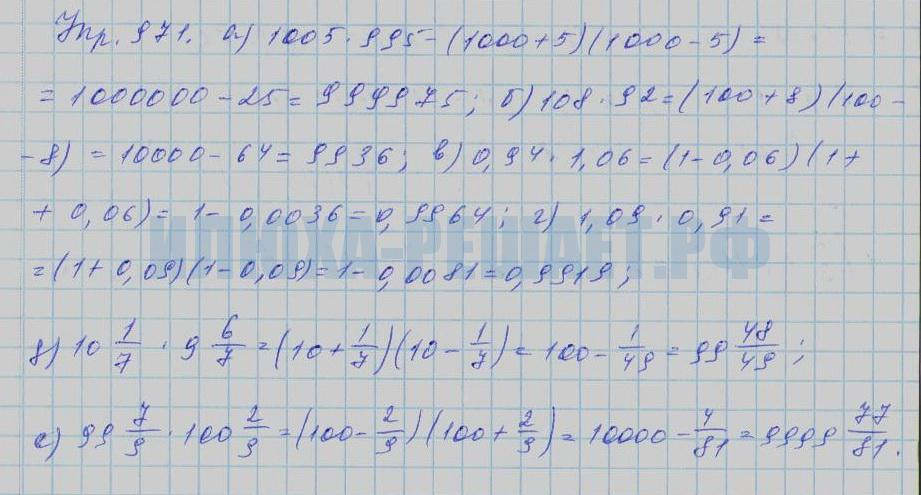 Упр. 971. а) 1005 · 995 - (1000 + 5)(1000 - 5) =
= 1000000 - 25 = 999975; б) 108 · 92 = (100 + 8)(100 -
- 8) = 10000 - 64 = 9936; в) 0,94 · 1,06 = (1 - 0,06)(1 +
+ 0,06) = 1 - 0,0036 = 0,9964; г) 1,09 · 0,91 =
ИЛЮХА-РЕШАЕТ.РФ
= (1 + 0,09)(1 - 0,09) = 1 - 0,0081 = 0,9919;
д) 10 1/7 · 9 6/7 = (10 + 1/7)(10 - 1/7) = 100 - 1/49 = 99 48/49;
е) 99 7/9 · 100 2/9 = (100 - 2/9)(100 + 2/9) = 10000 - 4/81 = 9999 77/81.